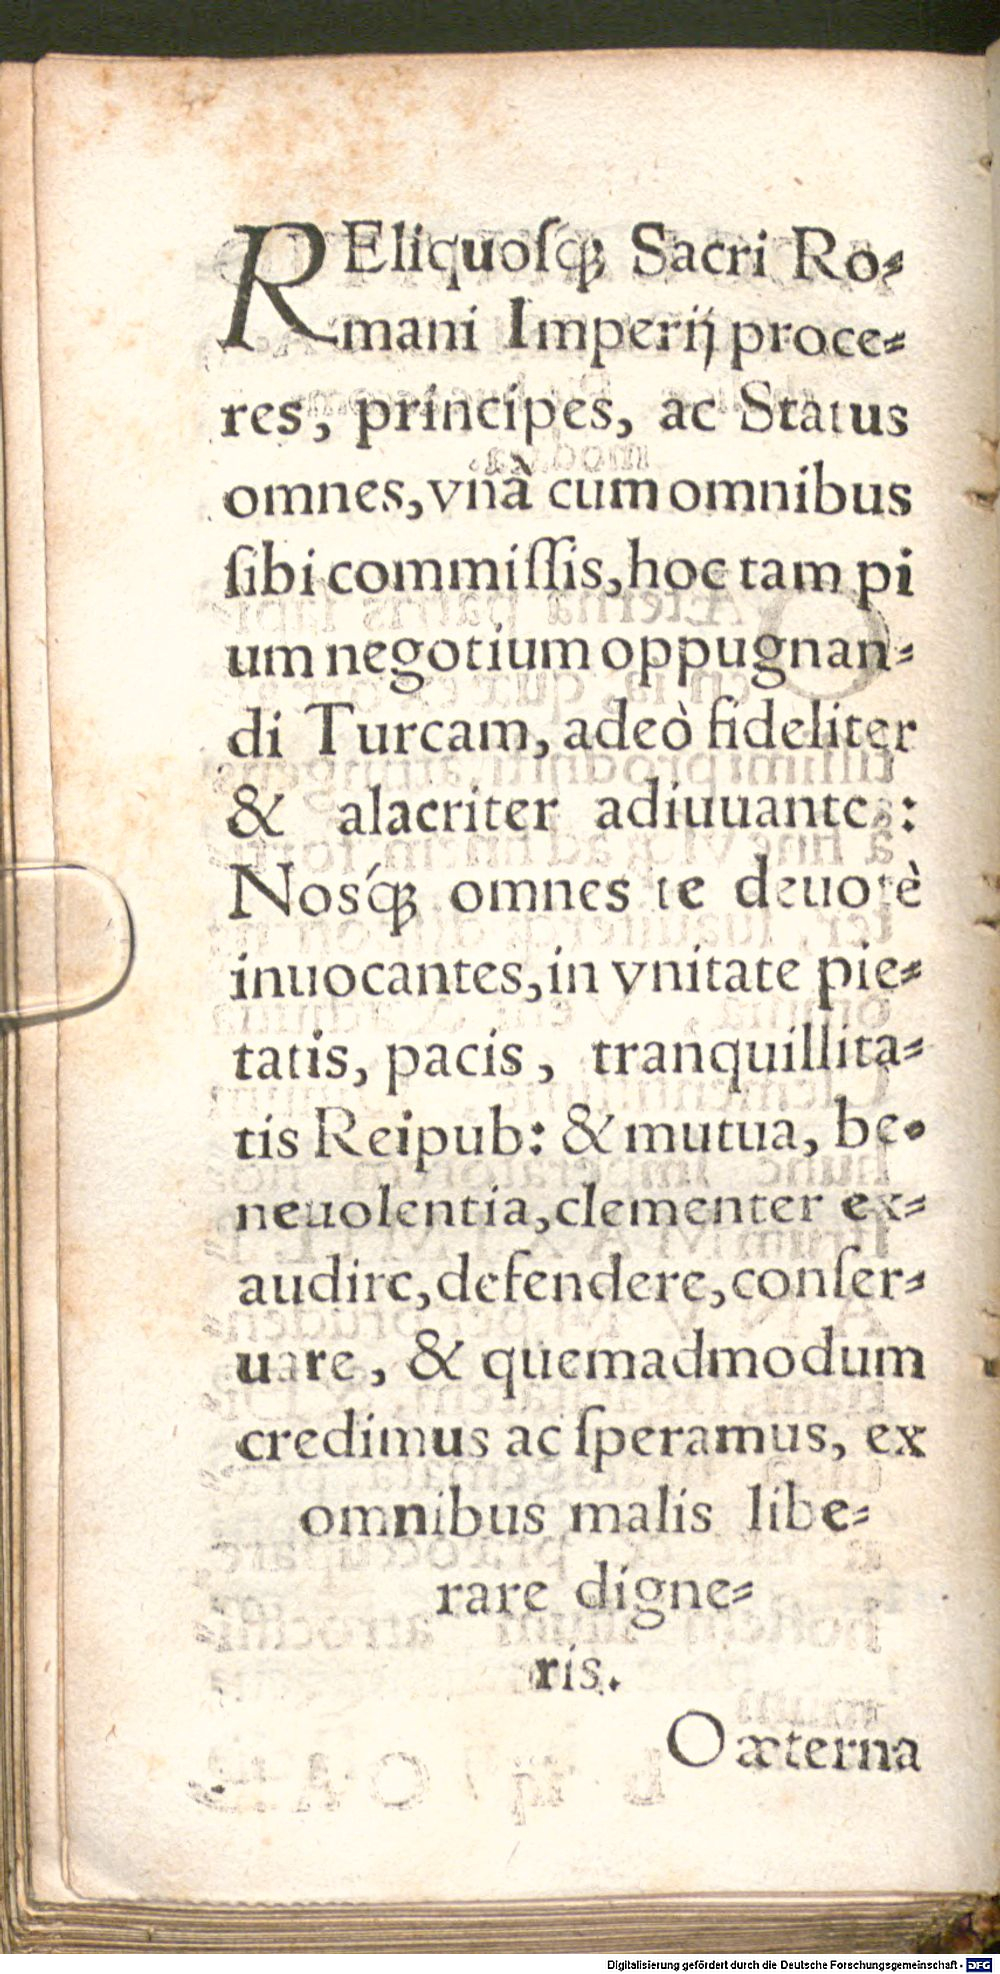 REliquosq́; Sacri Ro-
mani Imperij proce-
res, principes, ac Status
omnes, vnà cum omnibus
ſibi commiſſis, hoc tam pi
um negotium oppugnan-
di Turcam, adeò fideliter
& alacriter adiuuantes:
Nosq́; omnes te deuotè
inuocantes, in vnitate pie-
tatis, pacis, tranquillita-
tis Reipub: & mutua, be-
neuolentia, clementer ex-
audire, defendere, conſer-
uare, & quemadmodum
credimus ac ſperamus, ex
omnibus malis libe-
rare digne-
ris.
O æterna
Digitalisierung gefördert durch die Deutsche Forschungsgemeinschaft - DFG